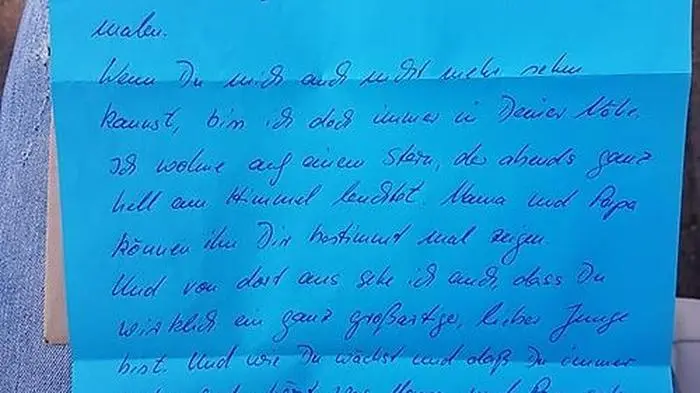 malen.
Wenn Du mich auch nicht mehr sehen
kannst, bin ich doch immer in Deiner Nähe.
Ich wohne auf einem Stern, der abends ganz
hell am Himmel leuchtet. Mama und Papa
können ihn Dir bestimmt mal zeigen.
Und von dort aus sehe ich auch, dass Du
wirklich ein ganz großartiger, lieber Junge
bist. Und wie Du wächst und daß Du immer